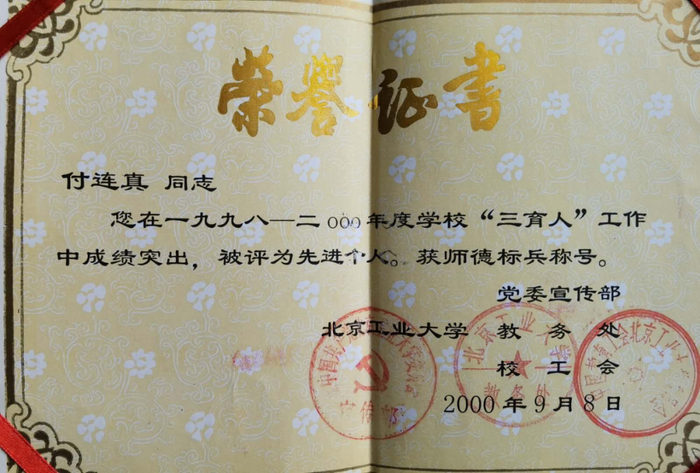 荣誉证书
付连真 同志
您在一九九八—二000年度学校“三育人”工作
中成绩突出，被评为先进个人。获师德标兵称号。
党委宣传部
北京工业大学 教务处
校工会
2000年9月8日
宣传部
北京工业大学
教务处